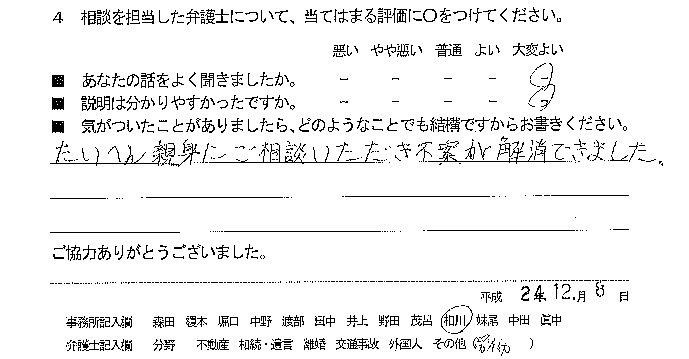 4 相談を担当した弁護士について、当てはまる評価に○をつけてください。
悪い やや悪い 普通 よい 大変よい
■ あなたの話をよく聞きましたか。 - - - - -
■ 説明は分かりやすかったですか。 - - - - -
■ 気がついたことがありましたら、どのようなことでも結構ですからお書きください。
たいへん親身にご相談いただき不安が解消できました。
ご協力ありがとうございました。
平成 24.12.月 8 日
事務所記入欄 森田 榎本 堀口 中野 渡部 田中 井上 野田 茂呂 和川 妹尾 中田 田中
弁護士記入欄 分野 不動産 相続・遺言 離婚 交通事故 外国人 その他 ( 労働 )